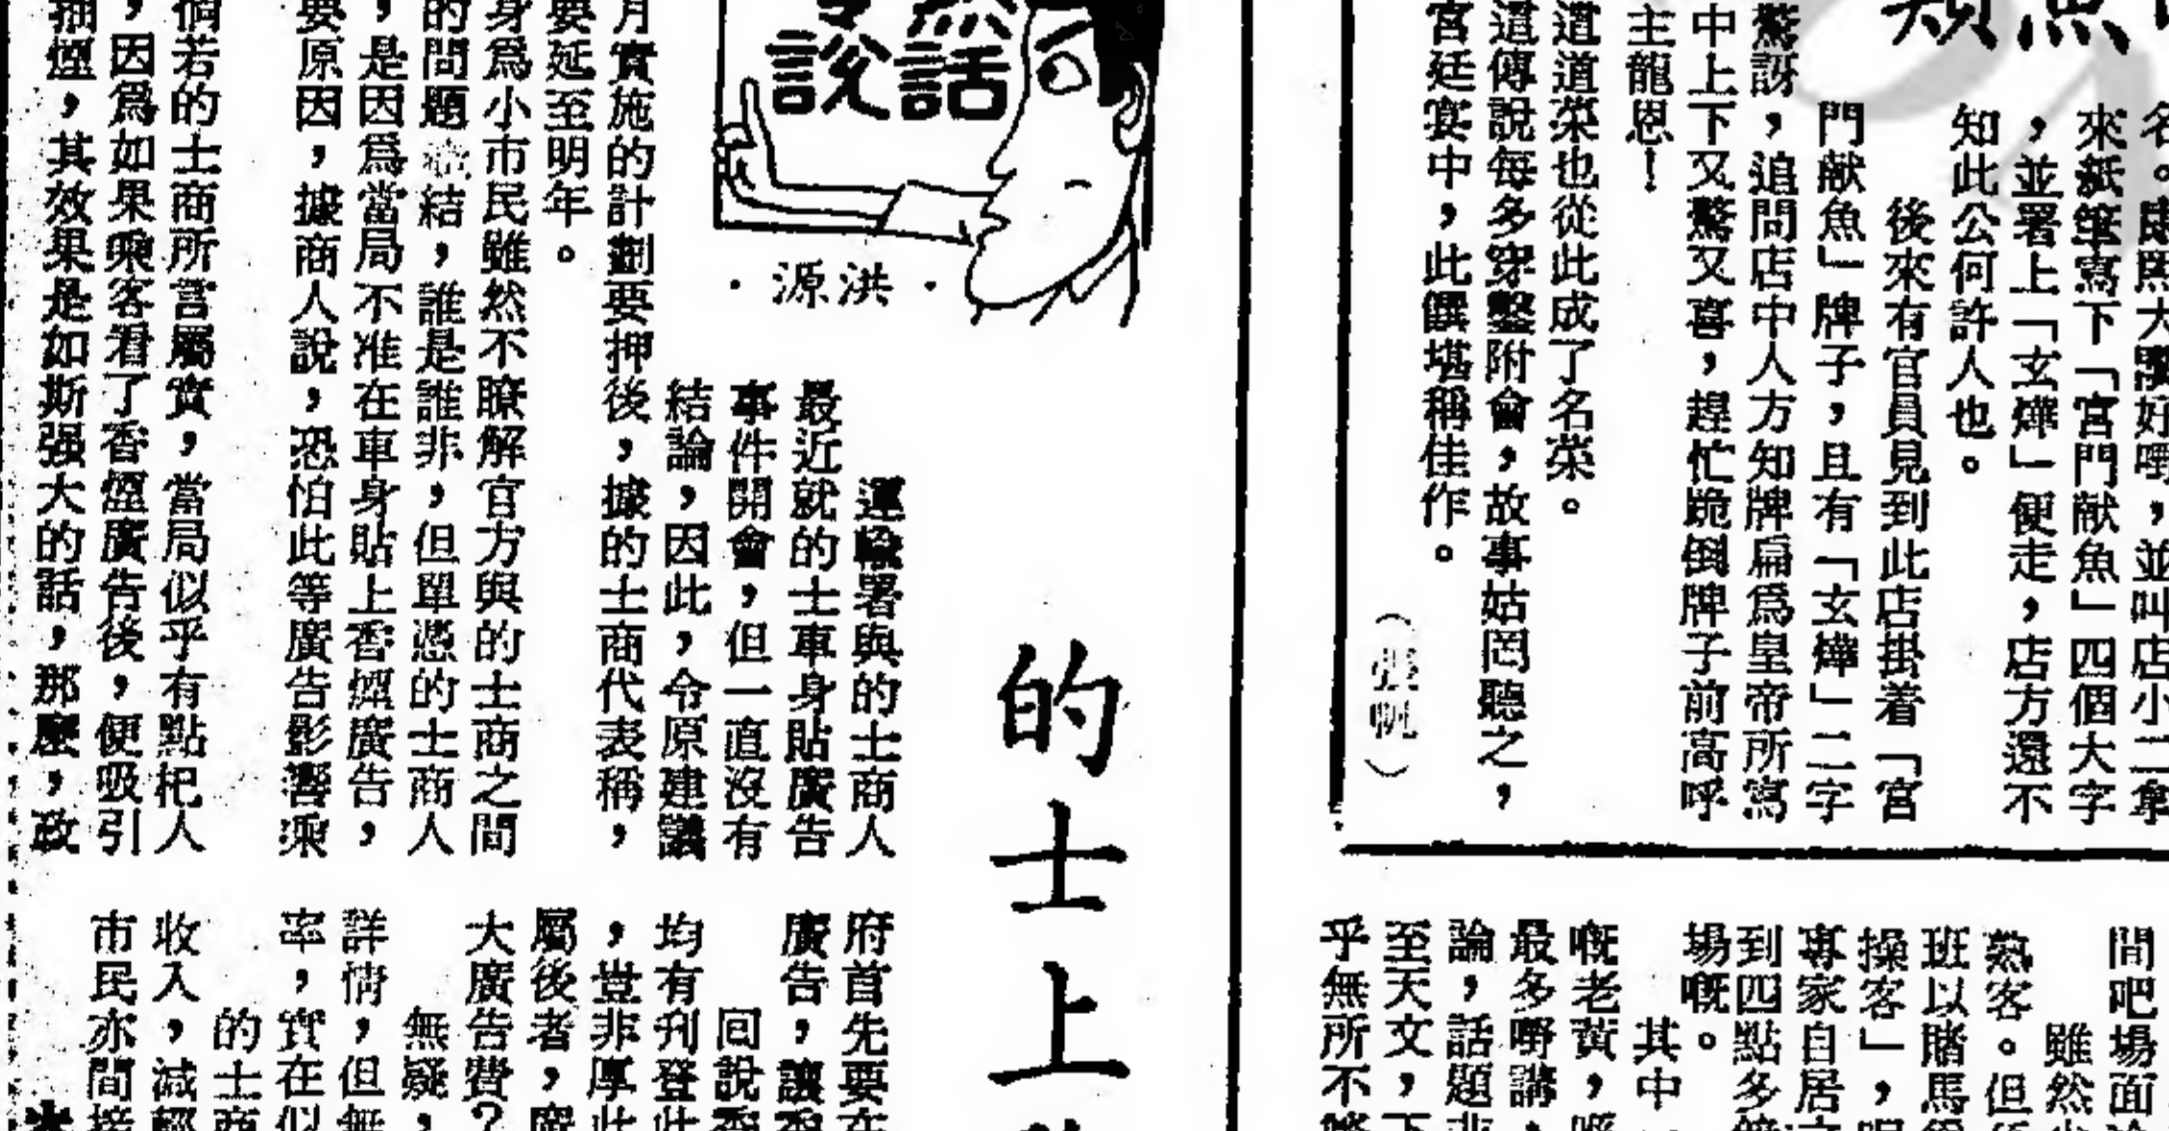 類魚
名。
來紙筆寫下「宮門献魚」四個大字
，並署上「玄燁」便走，店方還不
知此公何許人也。
後來有官員見到此店掛着「宮
門献魚」牌子，且有「玄燁」二字
驚訝，追問店中人方知牌扁爲皇帝所寫
中上下又驚又喜，趕忙跪倒牌子前高呼
主龍恩！
這道菜也從此成了名菜。
這傳說每多穿鑿附會，故事姑罔聽之，
宮廷宴中，此饌堪稱佳作。
間吧場面
雖然
熟客。但
班以賭馬
操客」，
專家自居
到四點多
場嘅。
其中
嘅老黃，
最多嘢講，
論，話題
至天文，下
乎無所不
話
說
·洪源·
的士上
運輸署與的士商人
最近就的士車身貼廣告
事件開會，但一直沒有
結論，因此，令原建議
月實施的計劃要押後，據的士商代表稱，
要延至明年。
身爲小市民雖然不瞭解官方與的士商之間
的問題結，誰是誰非，但單憑的士商人
，是因爲當局不准在車身貼上香煙廣告，
要原因，據商人說，恐怕此等廣告影響乘
倘若的士商所言屬實，當局似乎有點杞人
，因爲如果乘客看了香煙廣告後，便吸引
抽煙，其效果是如斯强大的話，那麼，政
府首先要在
廣告，讓
回說香
均有刋登此
，豈非厚此
屬後者，
大廣告費？
無疑，
詳情，但無
率，實在似
的士商
收入，減輕
市民亦間接